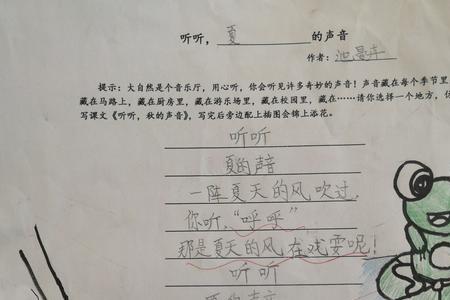 听听，夏的声音
作者：池
提示：大自然是个音乐厅，用心听，你会听见许多奇妙的声音！声音藏在每个季节里
藏在马路上，藏在厨房里，藏在游乐场里，藏在校园里，藏在……请你选择一个地方，仿
写课文《听听，秋的声音》，写完后旁边配上插图会锦上添花。
听听
夏的声音
一阵夏天的风吹过，
你听，“呼呼”
那是夏天的风在戏耍呢！
听听